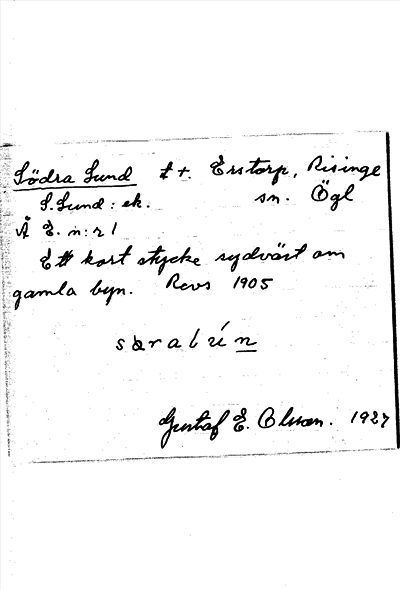 Södra Lund t t. Erstorp, Risinge
S. Lund: ek. sn. Ögl
Å E. n:r 1
Ett kort stycke sydväst om
gamla byn. Revs 1905
Gustaf E. Olsson. 1927